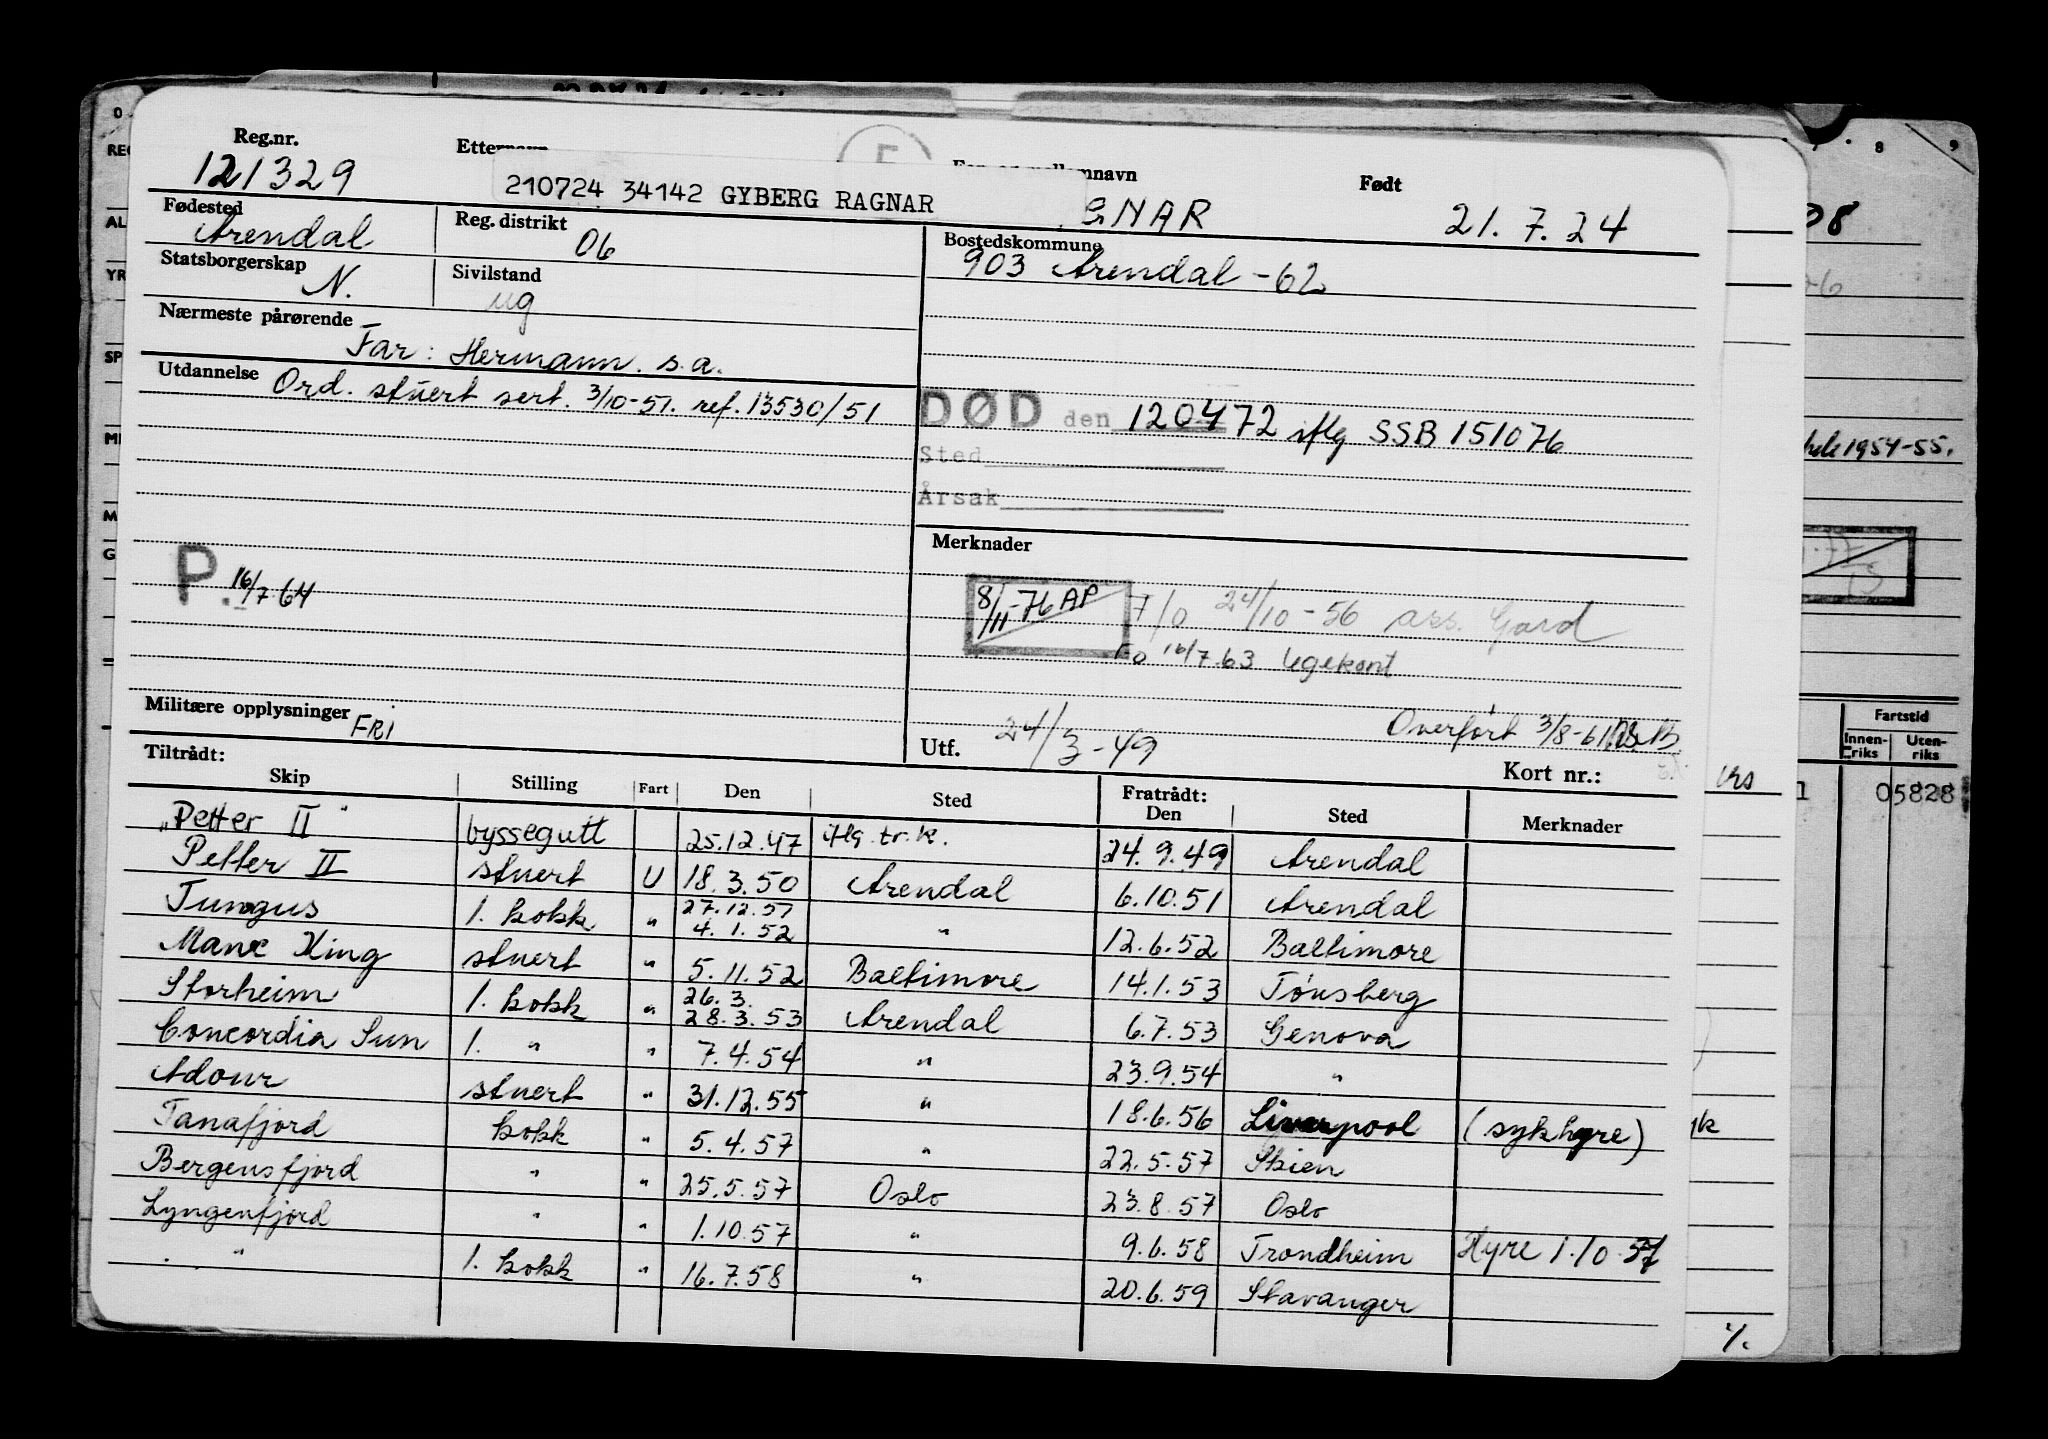 Reg.nr. Etternavn mnavn Født
121329 210724 34142 GYBERG RAGNAR GNAR 21.7.24
Fødested Arendal Reg. distrikt 06 Bostedskommune
903 Arendal -62
Statsborgerskap N. Sivilstand ug
Nærmeste pårørende Far: Hermann. s.a.
Utdannelse Ord. stuert sert. 3/10-51. ref. 13530/51
DØD den 120472 iflg SSB 151076
Sted
Årsak
Merknader
P. 16/7 64
8/11-76 AP
F/O 24/10-56 Gard
16/7.63 legekont
Militære opplysninger FRI
Utf. 24/3-49 Overført 3/8-61
Kort nr.:
Tiltrådt: Fratrådt:
Skip Stilling Fart Den Sted Den Sted Merknader
"Petter II" byssegutt 25.12.47 iflg. tr.k. 24.9.49 Arendal
Petter II stuert U 18.3.50 Arendal 6.10.51 Arendal
Tungus 1. kokk " 27.12.51 4.1.52 " 12.6.52 Baltimore
King stuert " 5.11.52 Baltimore 14.1.53 Tønsberg
Storheim 1. kokk " 26.3. 28.3.53 Arendal 6.7.53 Genova
Concordia Sun 1. " " 7.4.54 " 23.9.54 "
Adour stuert " 31.12.55 " 18.6.56 Liverpool (sykhyre)
Tanafjord kokk " 5.4.57 " 22.5.57 Skien
Bergensfjord " " 25.5.57 Oslo 23.8.57 Oslo
Lyngenfjord " " 1.10.57 " 9.6.58 Trondheim Hyre 1.10.57
" 1. kokk " 16.7.58 " 20.6.59 Stavanger
8 9
1954-55.
Fartstid
Innen-riks Uten-riks
05828
%.